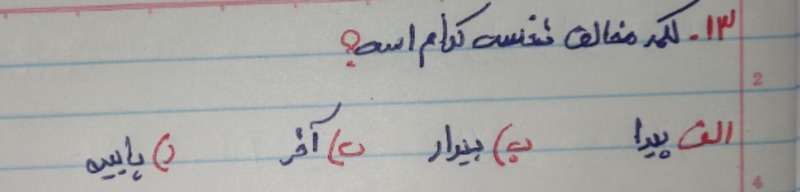 ۱۳. کلمه مخالف نخست کدام است؟
الف پیدا ب) بیدار ج) آخر د) پایین
2
4